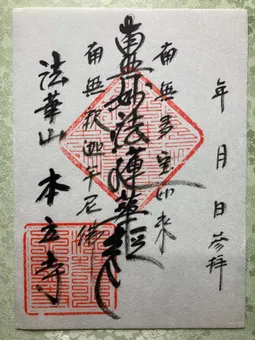 年 月 日 参拝
南無多宝如来
南無妙法蓮華経
南無釈迦牟尼佛
法華山 本立寺